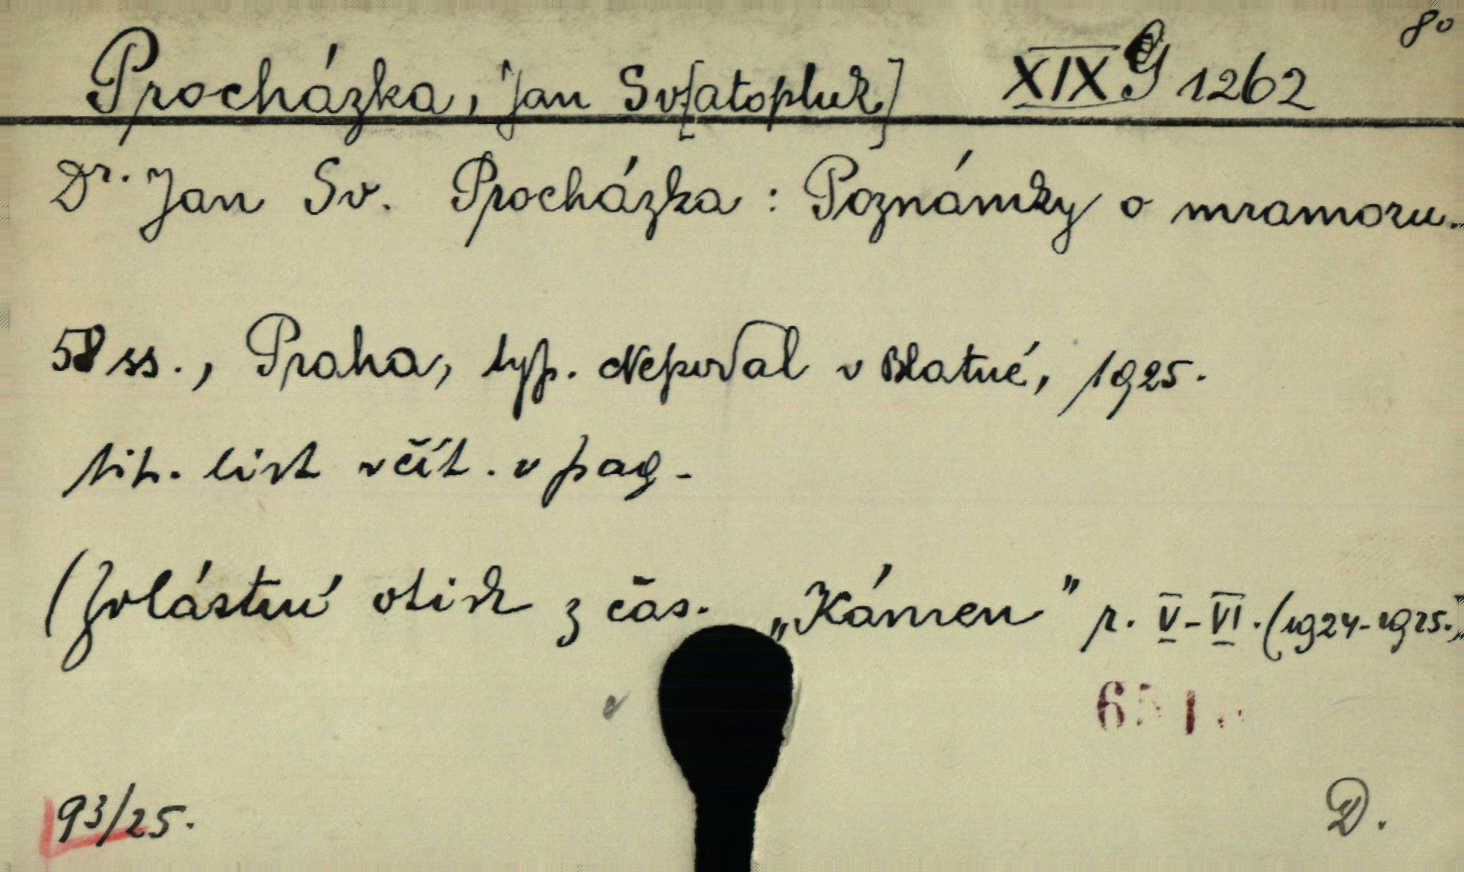 8°
Procházka, Jan Sv[atopluk] XIX G 1262
Dr. Jan Sv. Procházka: Poznámky o mramoru..
58 ss., Praha, typ. Nepovdal v Blatné, 1925.
tit. list včít. v pag.
(Zvláštní otisk z čas. „Kámen" r. V-VI. (1924-1925.)
93/25.
D.